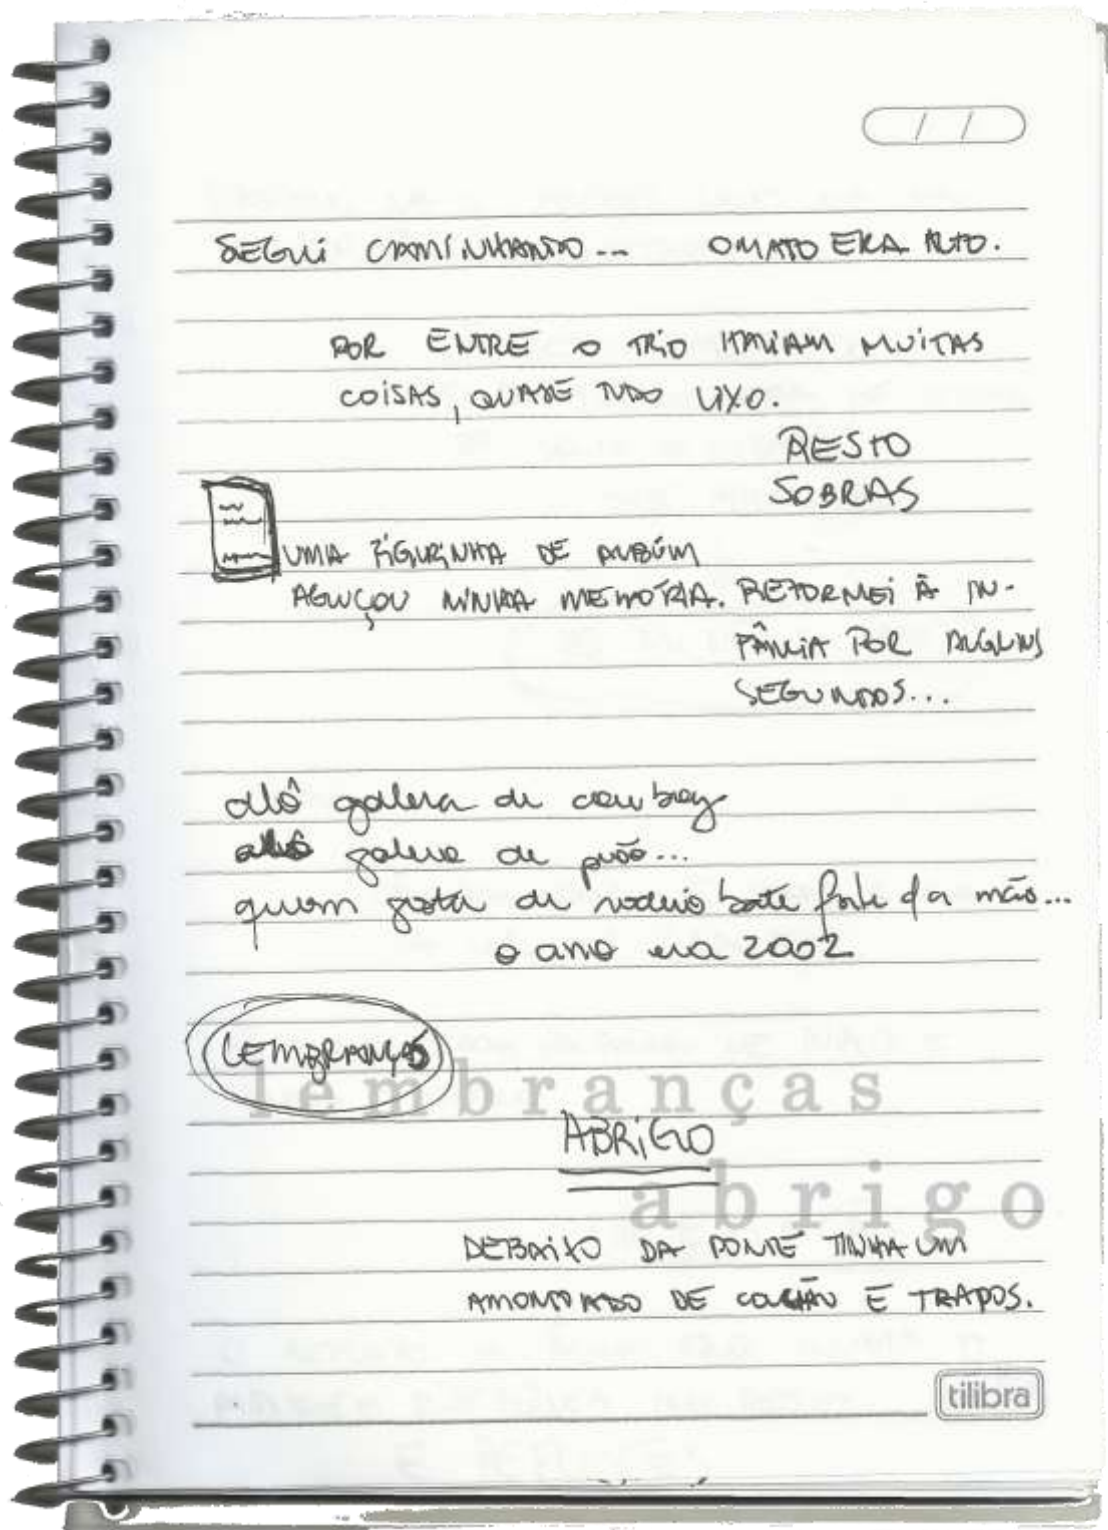 SEGUI CAMINHANDO... O MATO ERA ALTO.
POR ENTRE O TRIO HAVIAM MUITAS
COISAS, QUASE TUDO LIXO.
RESTO
SOBRAS
UMA FIGURINHA DE ALBÚM
AGUÇOU MINHA MEMÓRIA. RETORNEI À IN-
FÂNCIA POR ALGUNS
SEGUNDOS...
alô galera de cowboy
alô galera de peão...
quem gosta de rodeio bate forte da mão...
o ano era 2002
LEMBRANÇAS
lembranças
ABRIGO
abrigo
DEBAIXO DA PONTE TINHA UM
AMONTOADO DE COLCHÃO E TRAPOS.
tilibra